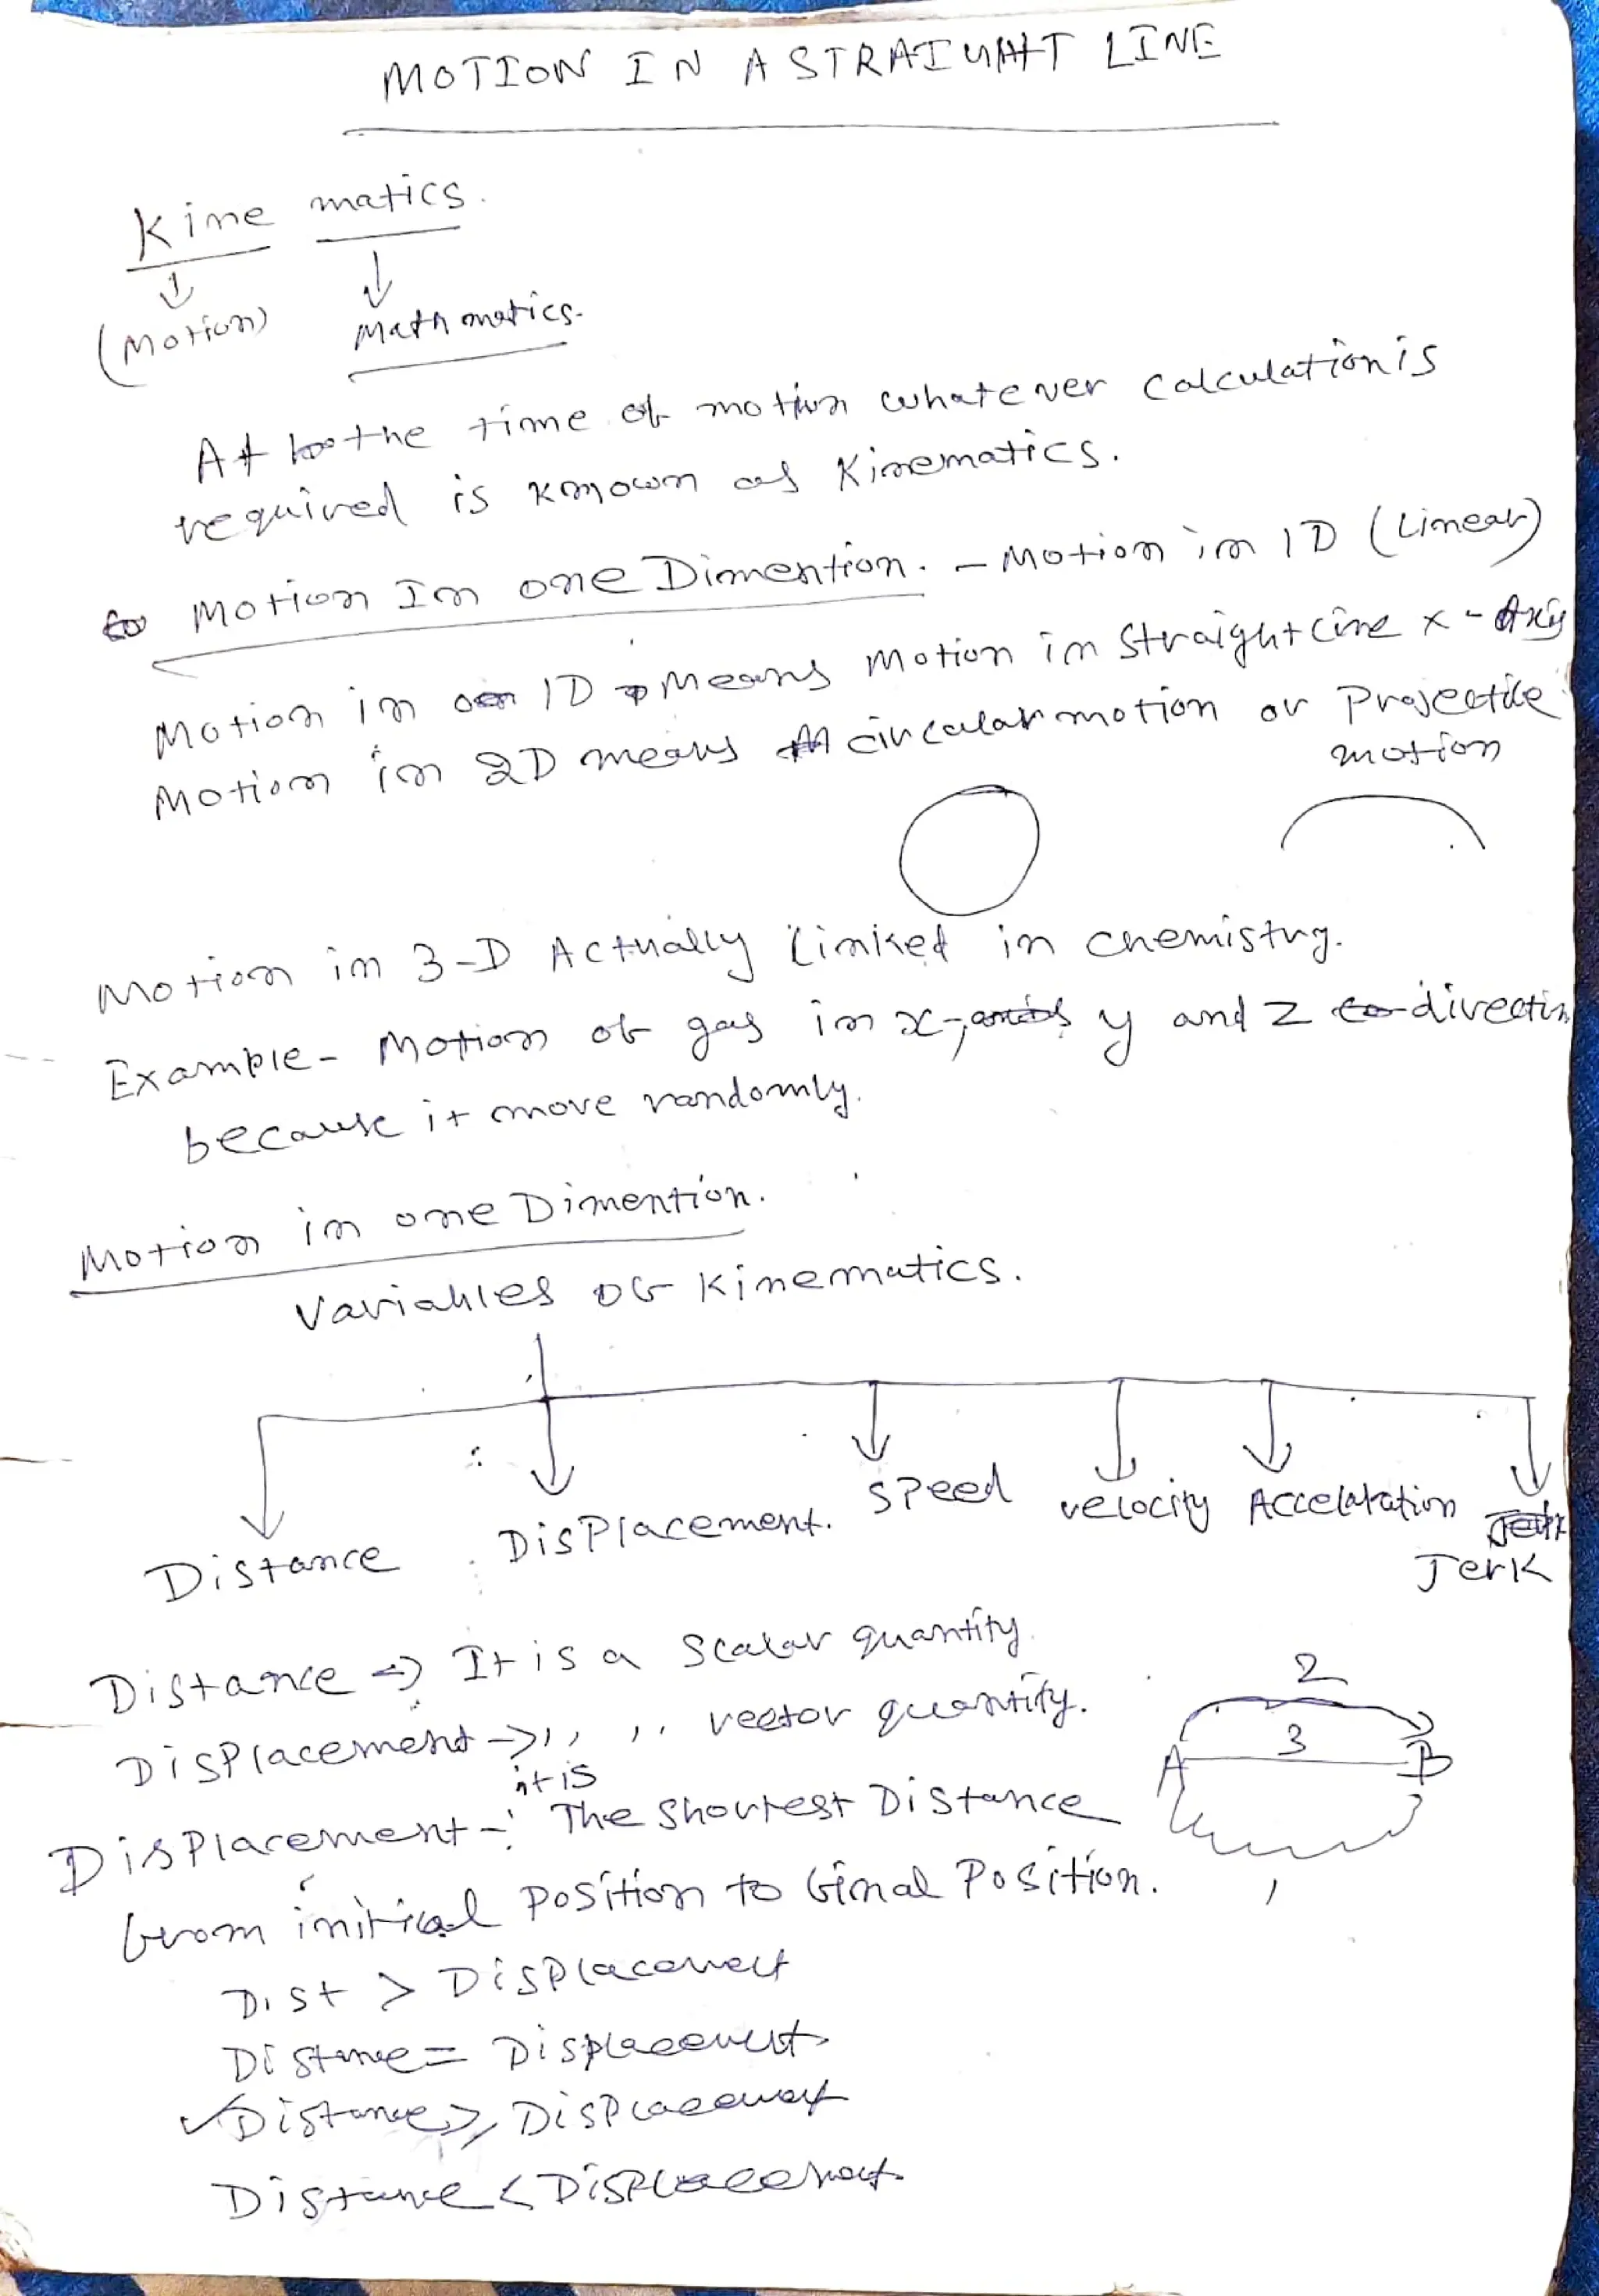 MOTION IN A STRAIGHT LINE
Kine matics.
(Motion) Mathmatics.
At the time of motion whatever calculation is
required is known as Kinematics.
Motion In one Dimention. - Motion in 1D (Linear)
Motion in 1D Means Motion in Straight Line x-Axis
Motion in 2D means circular motion or Projectile
motion
Motion in 3-D Actually linked in chemistry.
Example- Motion of gas in x, y and z direction
because it move randomly.
Motion in one Dimention.
Variables of Kinematics.
Distance Displacement. Speed velocity Accelaration
Jerk
Distance → It is a Scalar quantity.
Displacement → ,, ,, vector quantity.
2
3
A B
1
it is
Displacement -: The Shortest Distance
from initical Position to final Position.
Dist > Displacement
Distance = Displacement
✓Distance ≥ Displacement
Distance < Displacement